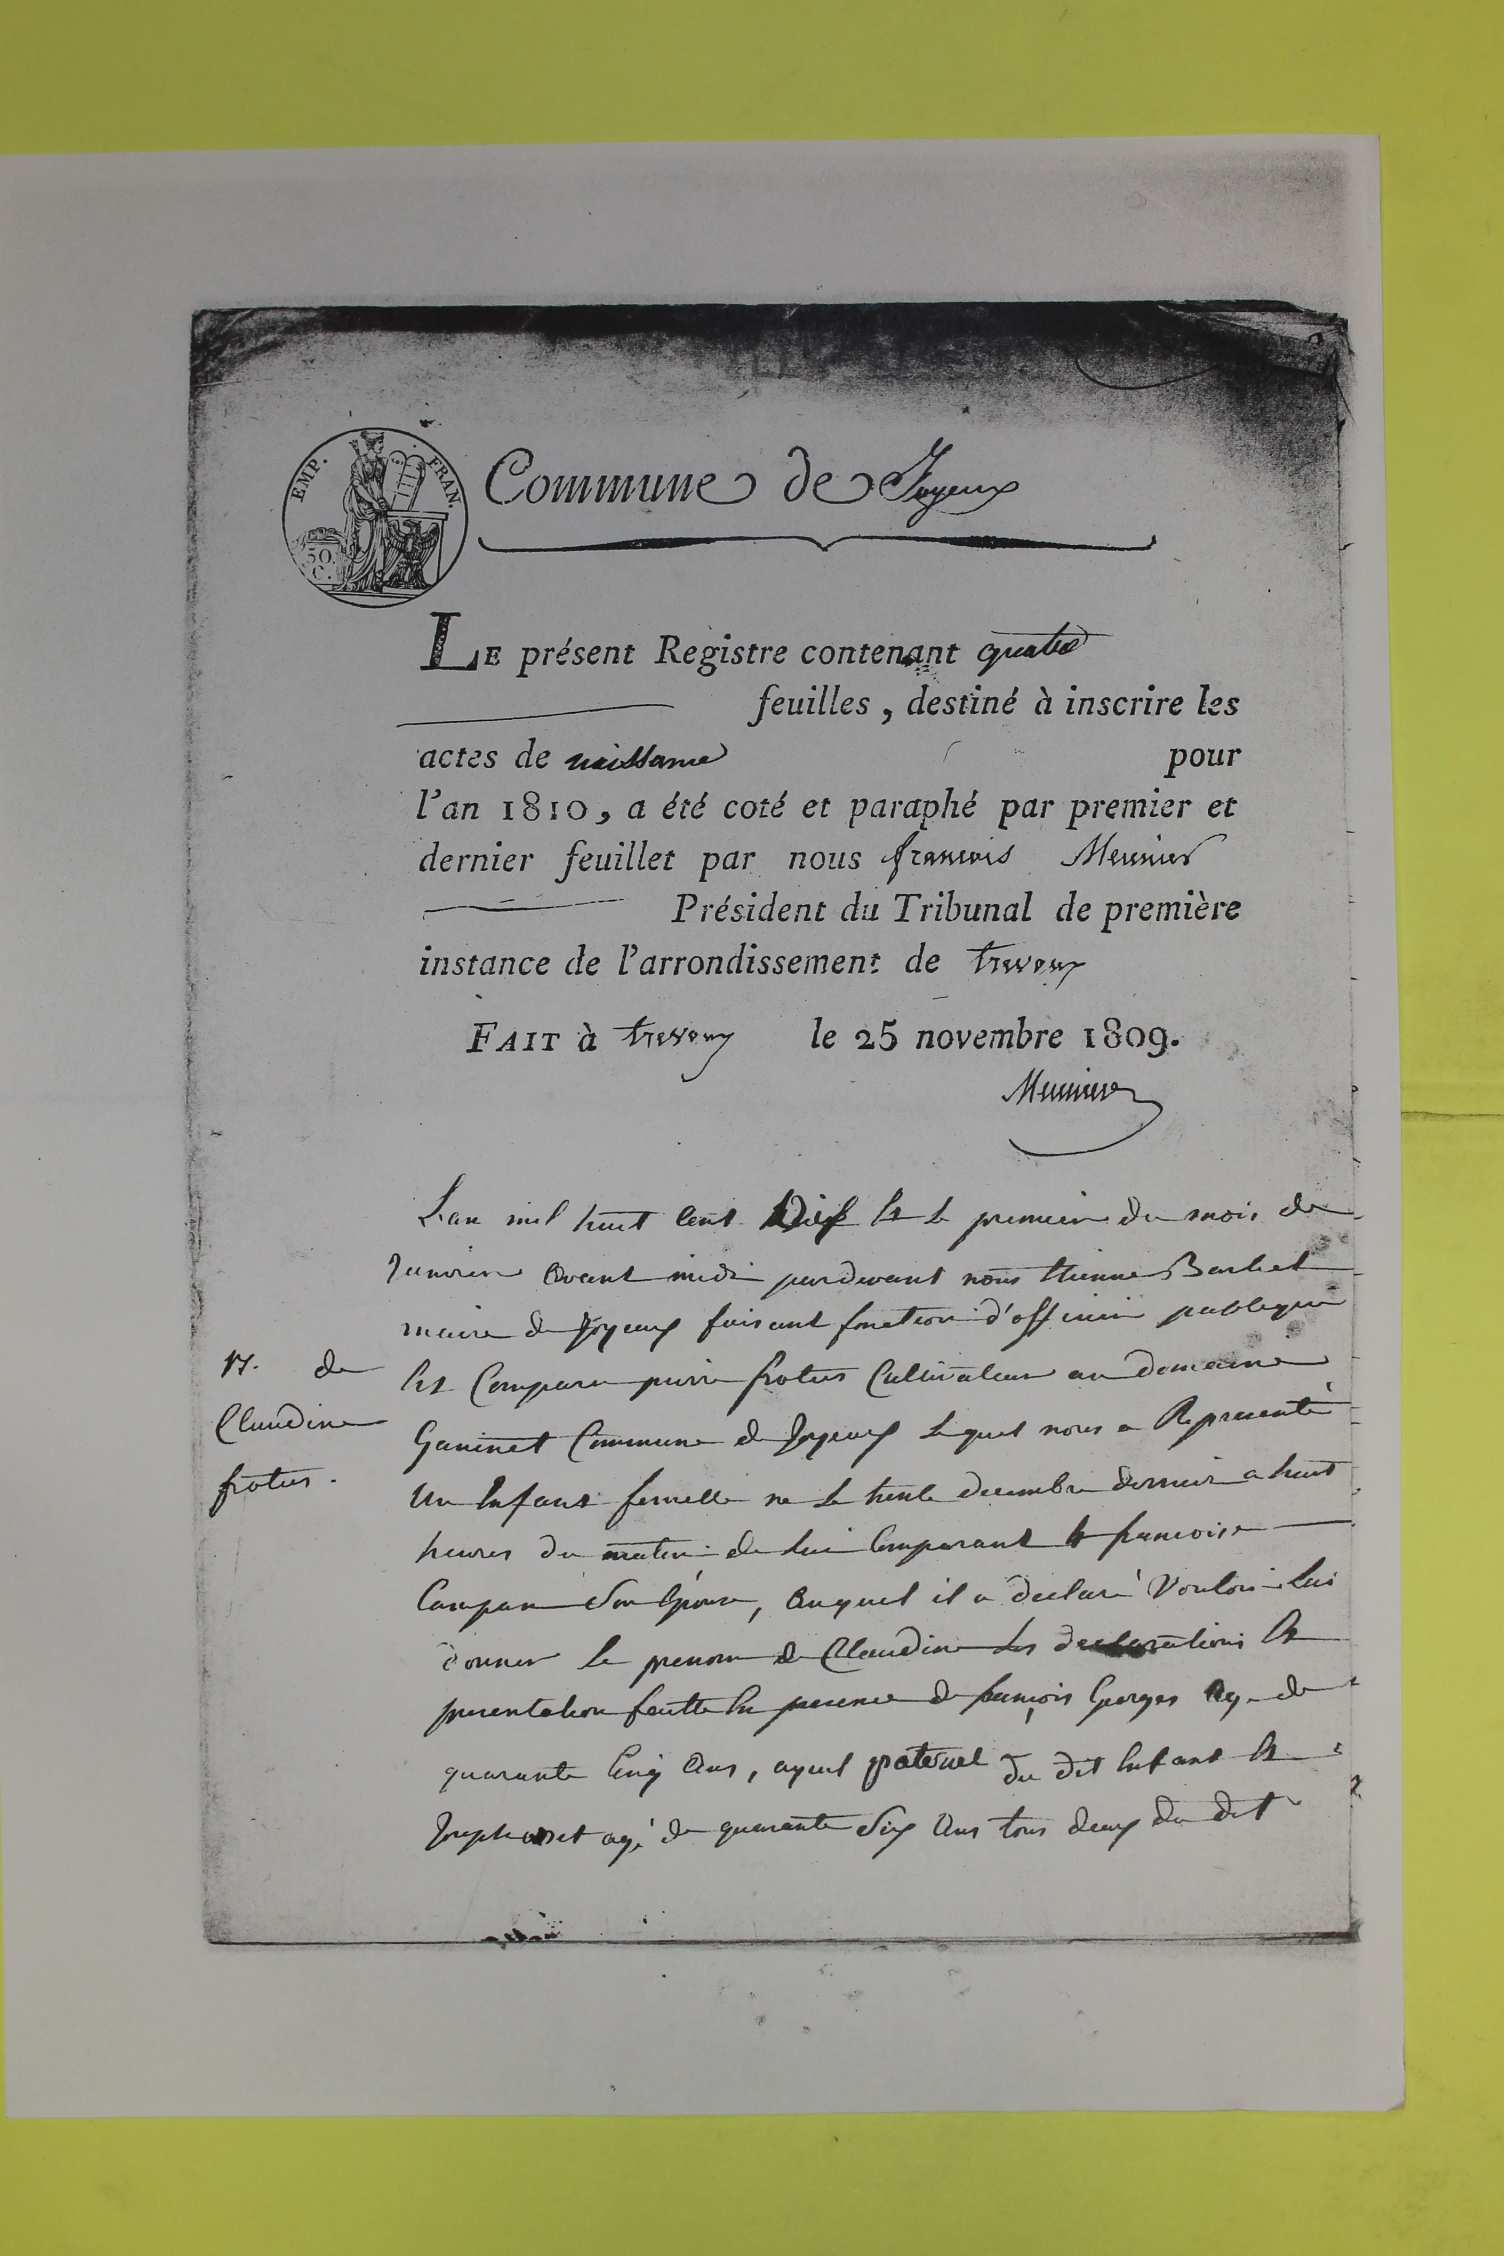 EMP. FRAN.
50 C.
Commune de Joyeux
LE présent Registre contenant quatre
feuilles , destiné à inscrire les
actes de naissance pour
l'an 1810, a été coté et paraphé par premier et
dernier feuillet par nous francois Meunier
Président du Tribunal de première
instance de l'arrondissement de trevoux
FAIT à trevoux le 25 novembre 1809.
Meunier
L'an mil huit Cent Dix Et Le premier du mois de
Janvier Avant midi pardevant nous Etienne Barbet
maire de Joyeux faisant fonction d'officier publique
N. de
Claudine
frotus.
Est Comparu pierre frotus Cultivateur au domaine
Gavinet Commune de Joyeux Lequel nous a Representé
Un Enfant femelle ne Le trente decembre dernier a huit
heures du matin de Lui Comparant Et francoise
Campan Son Epouse, Auquel il a declaré Vouloir Lui
donner Le prenom de Claudine Les declarations Et
presentation faitte En presence de françois Georges Agé de
quarante Cinq Ans, ayeul paternel du dit Enfant Et
Joseph agé de quarante Six Ans tous deux du dit